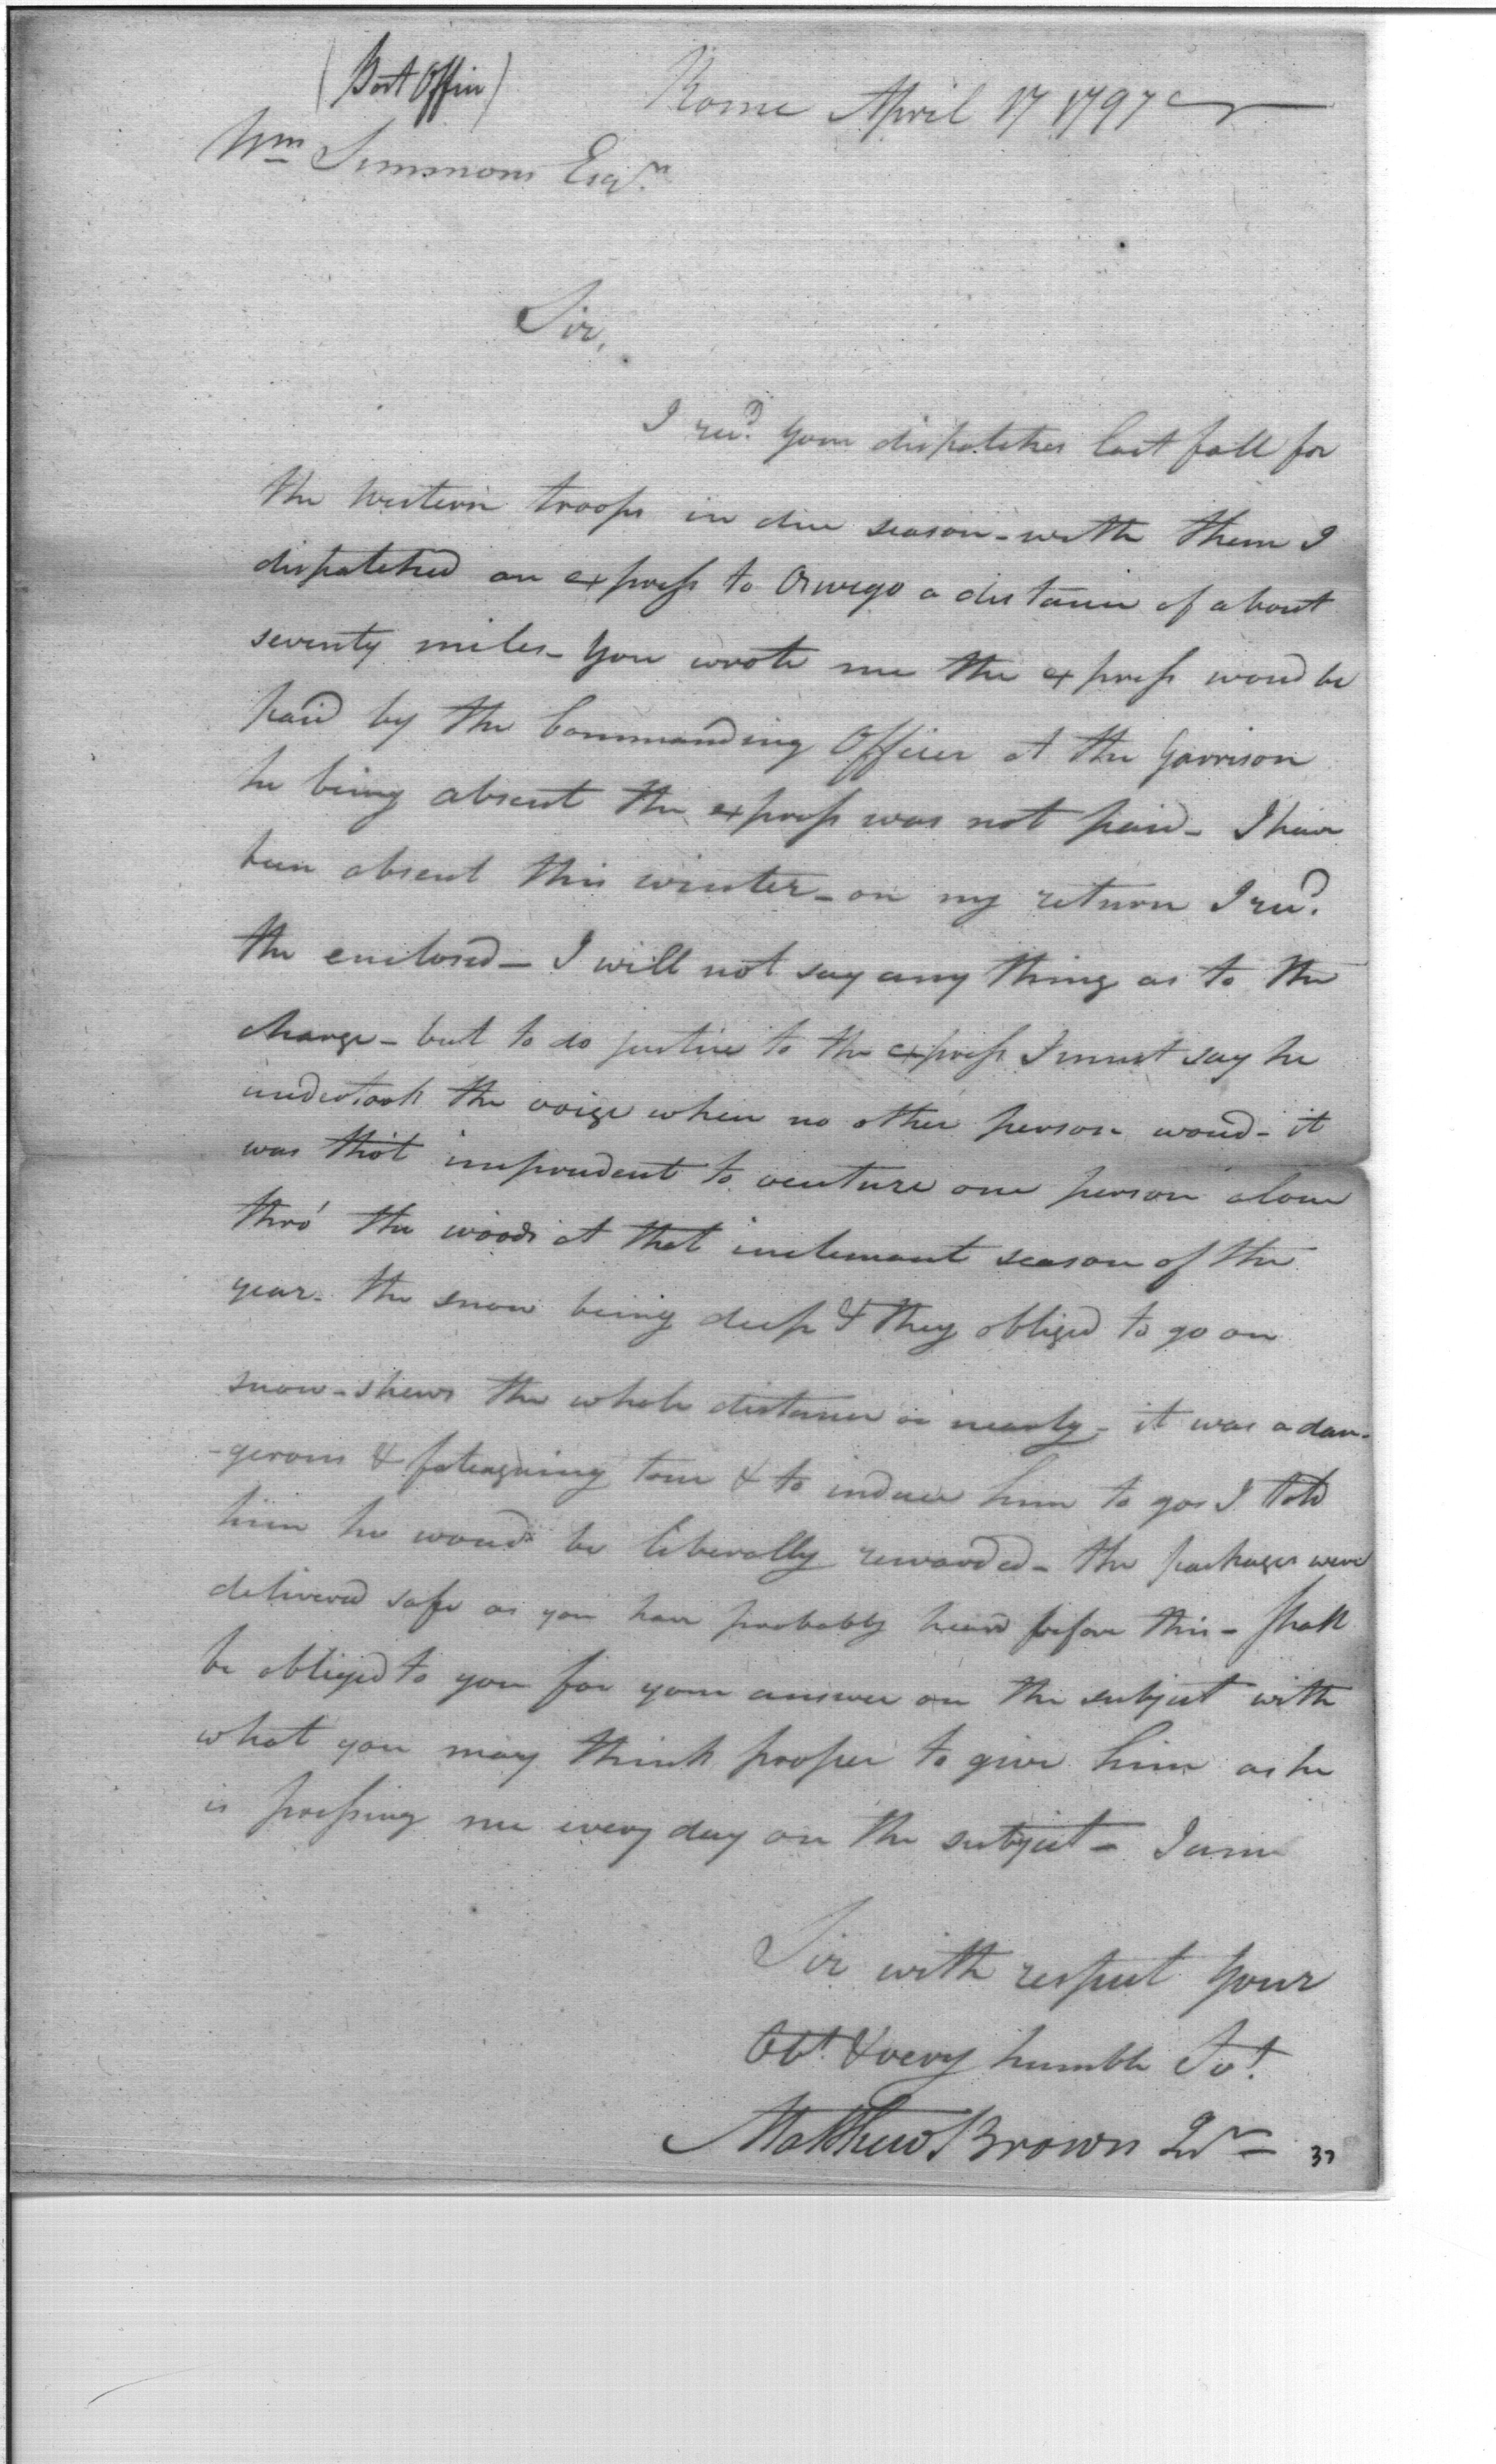 (Post Office)
Rome April 17 1797
Wm Simmons Esqr.
Sir,
I recd. your dispatches last fall for
the western troops in due season - with them I
dispatched an express to Oswego a distance of about
seventy miles - you wrote me the express woud be
paid by the Commanding Officer at the Garrison
he being absent the express was not paid - I have
been absent this winter - on my return I recd.
the enclosed - I will not say any thing as to the
charge - but to do justice to the express I must say he
undertook the voige when no other person woud - it
was thot imprudent to venture one person alone
thro' the woods at that inclemant season of the
year. the snow being deep & they obliged to go on
snow-shews the whole distance or nearly - it was a dan-
-gerous & fateaguing tour & to induce him to go I told
him he woud be liberally rewarded - the packages were
delivered safe as you have probably heard before this - shall
be obliged to you for your answer on the subject with
what you may think proper to give him as he
is pressing me every day on the subject - I am
Sir with respect your
Obt. & very humble Svt.
Matthew Brown Jr
37